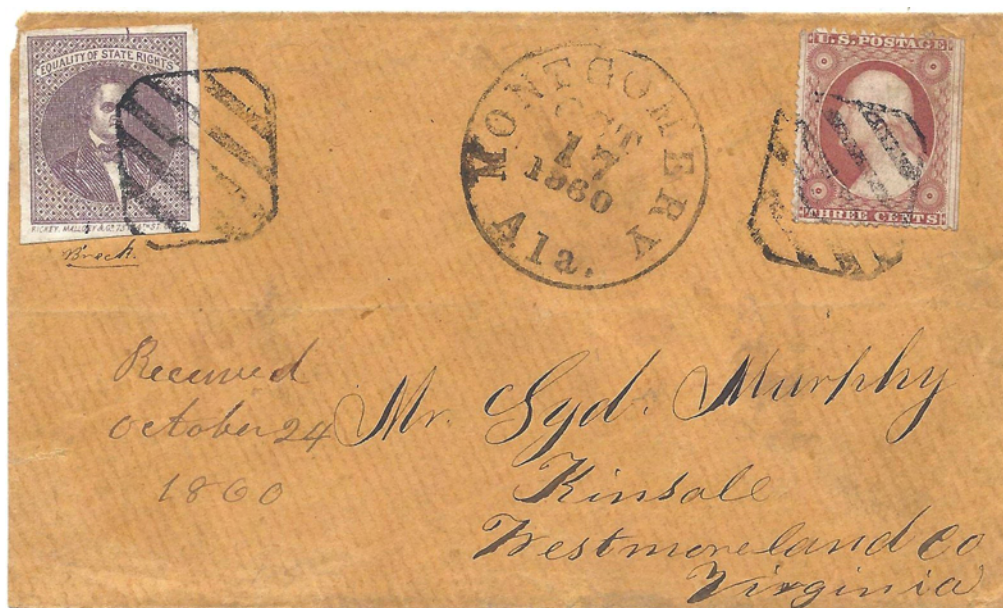 EQUALITY OF STATE RIGHTS
RICKEY, MALLORY & Co.
Breck.
MONTGOMERY
OCT
17
1860
Ala.
U.S. POSTAGE
THREE CENTS
Received
October 24
1860
Mr. Syd. Murphy
Kinsale
Westmoreland Co
Virginia